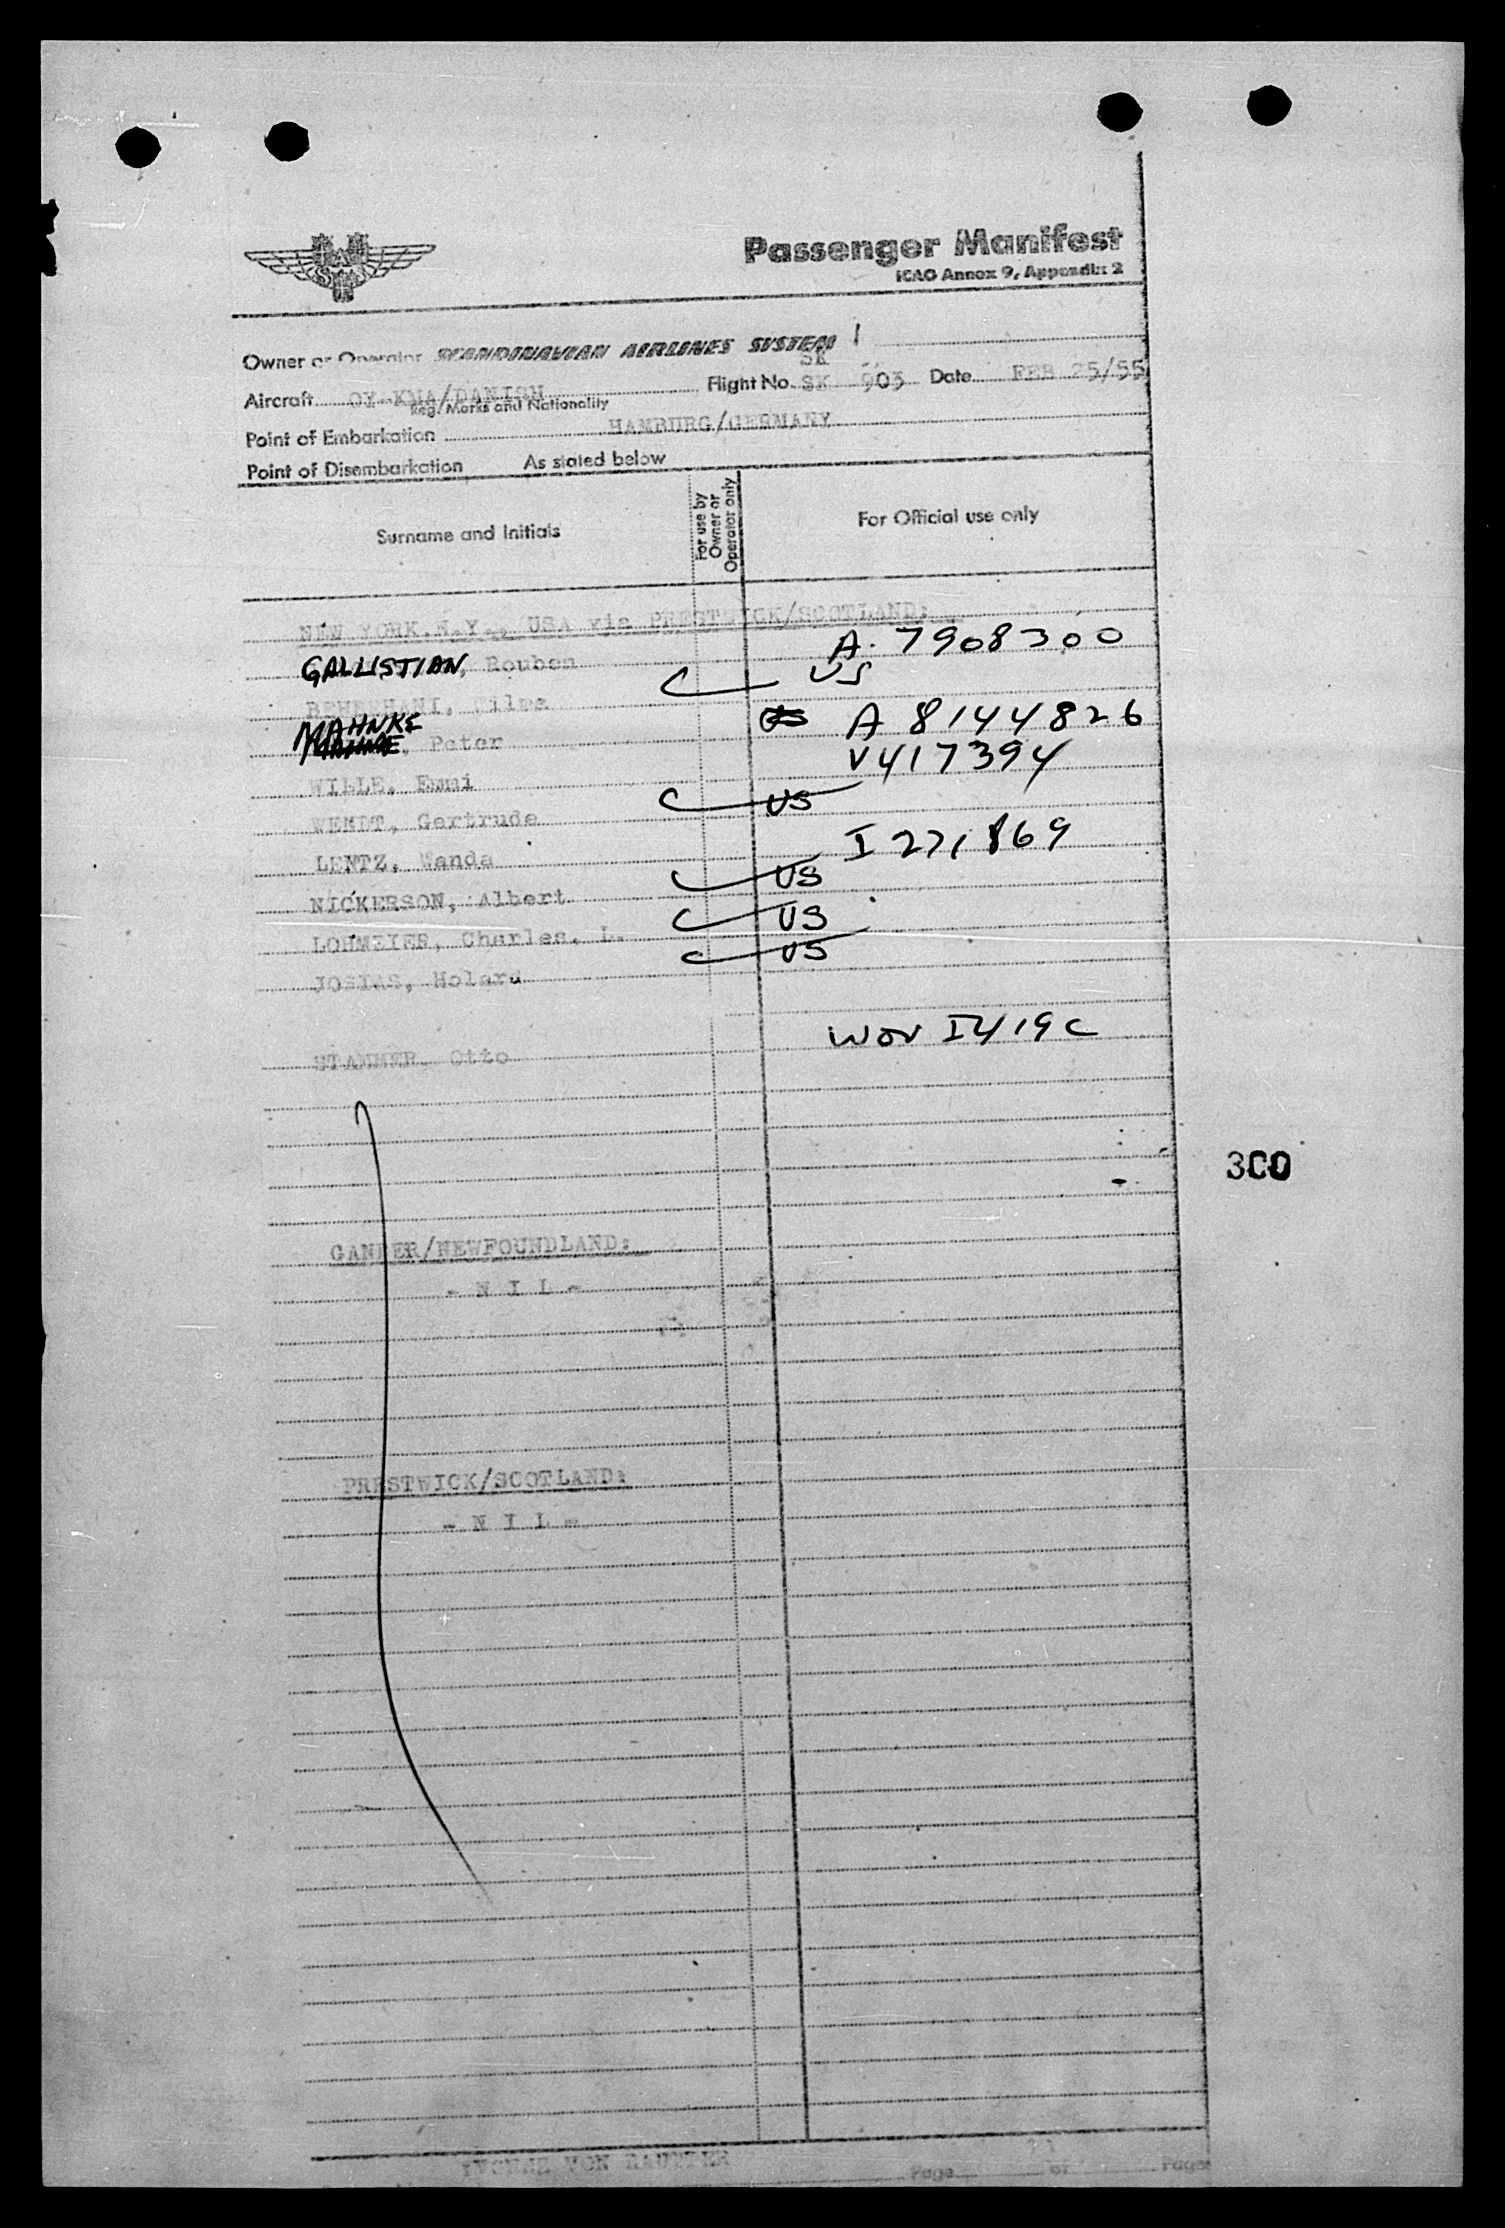 Passenger Manifest
ICAO Annex 9, Appendix 2
Owner or Operator SCANDINAVIAN AIRLINES SYSTEM
SK
Aircraft OY-KMA/DANISH Flight No. SK 903 Date FEB 25/55
Reg. Marks and Nationality
Point of Embarkation HAMBURG/GERMANY
Point of Disembarkation As stated below
Surname and Initials For use by Owner or Operator only For Official use only
NEW YORK.N.Y., USA via PRESTWICK/SCOTLAND:
GALLISTIAN, Rouben A. 7908300
US
MAHNKE
, Peter A 8144826
WILLE, Emmi V417394
WENDT, Gertrude US
LENTZ, Wanda I 271869
NICKERSON, Albert US
LOHMEIER, Charles, L. US
JOSIAS, Holard US
STAMMER, Otto WOV I419C
300
GANDER/NEWFOUNDLAND:
- N I L -
PRESTWICK/SCOTLAND:
- N I L -
VON
Page of Pages